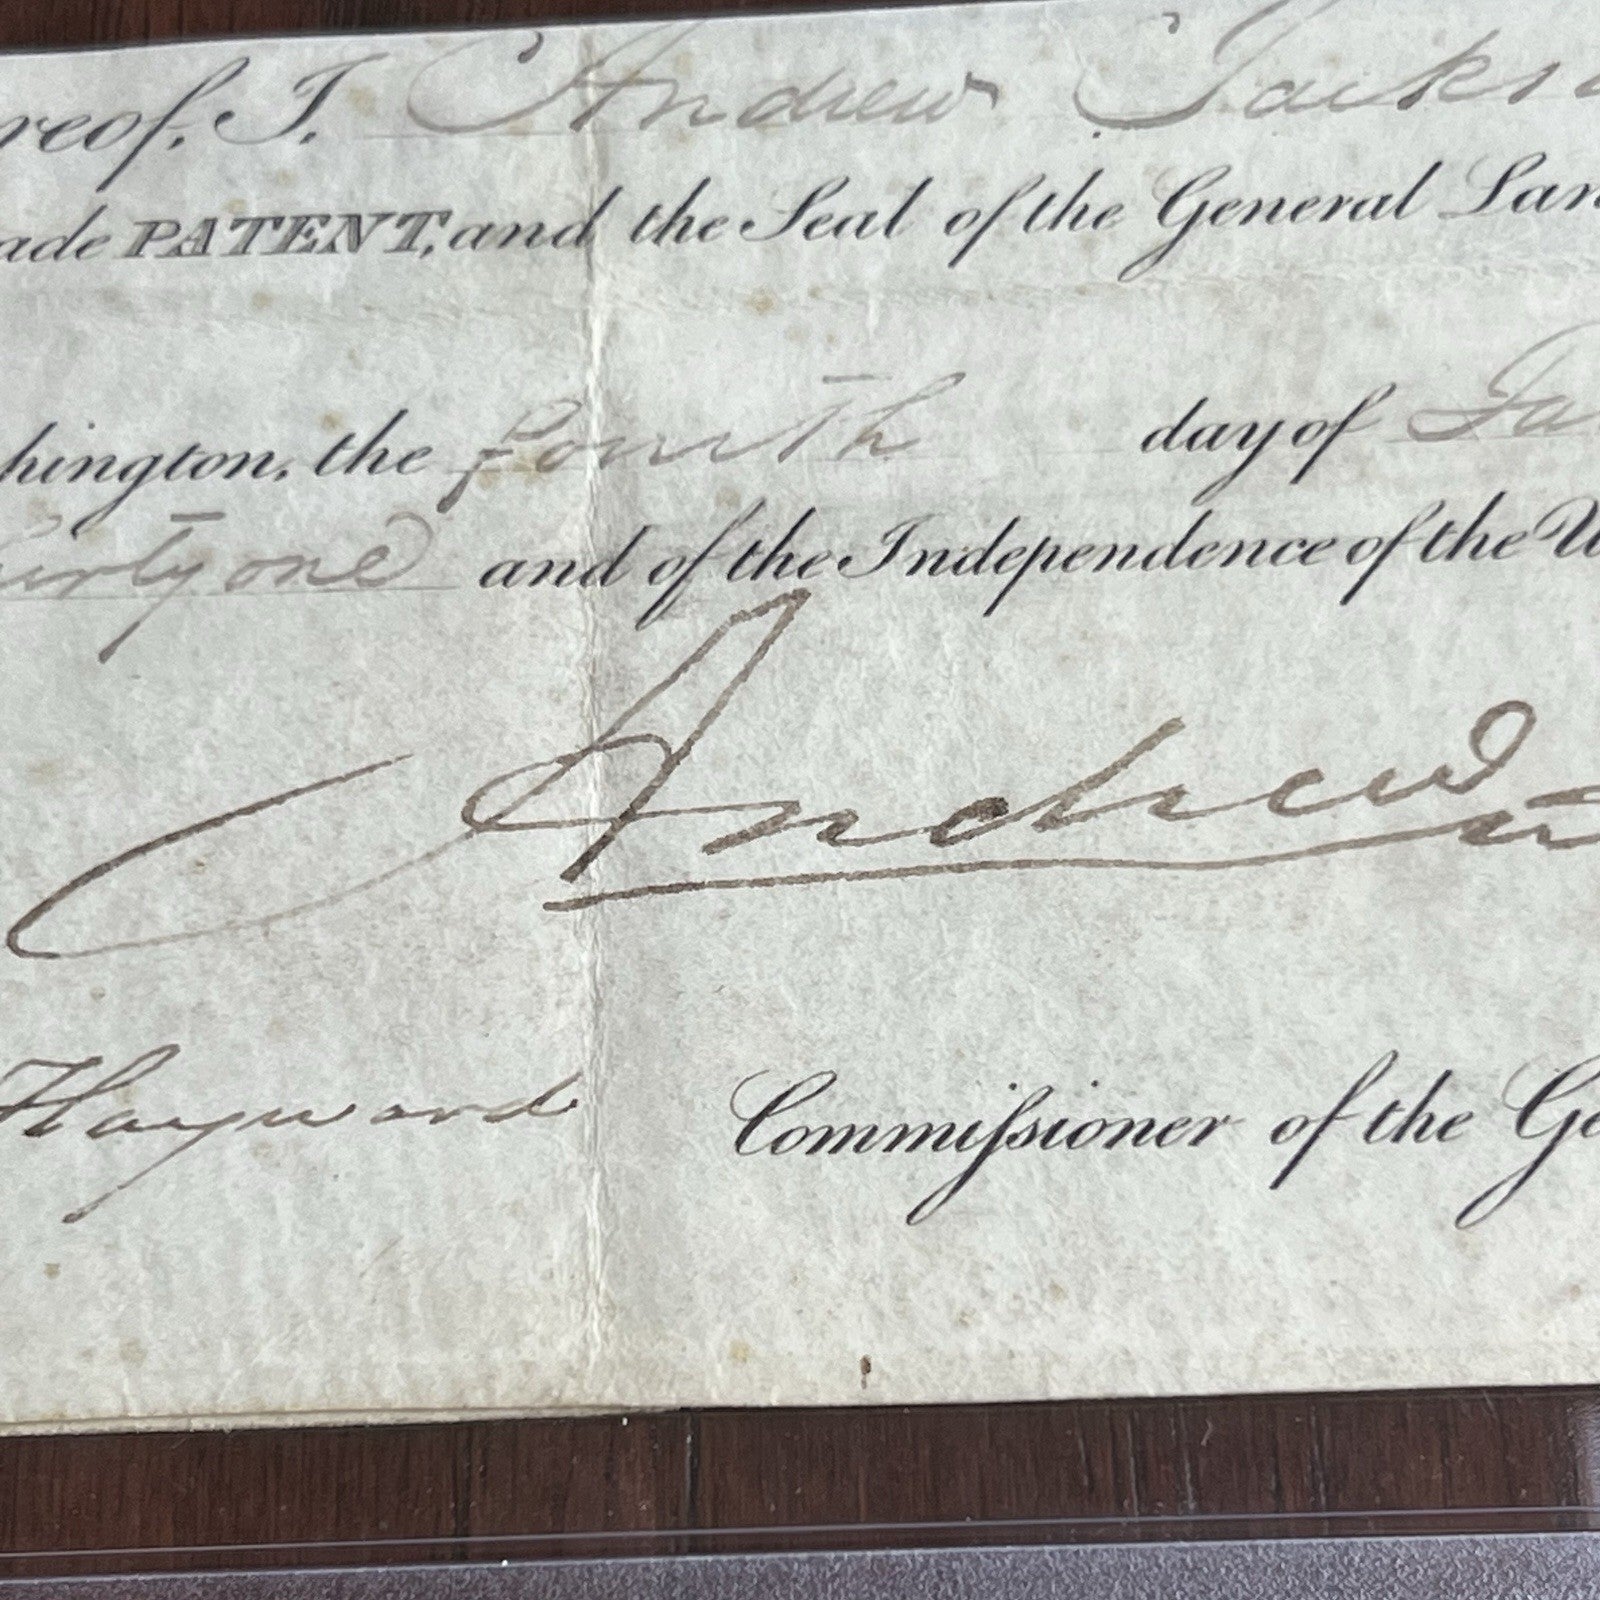 reof, I, Andrew Jacks
ade PATENT, and the Seal of the General Lan
hington, the fourth day of Ja
hirty one and of the Independence of the U
Andrew
Hayward Commissioner of the Ge